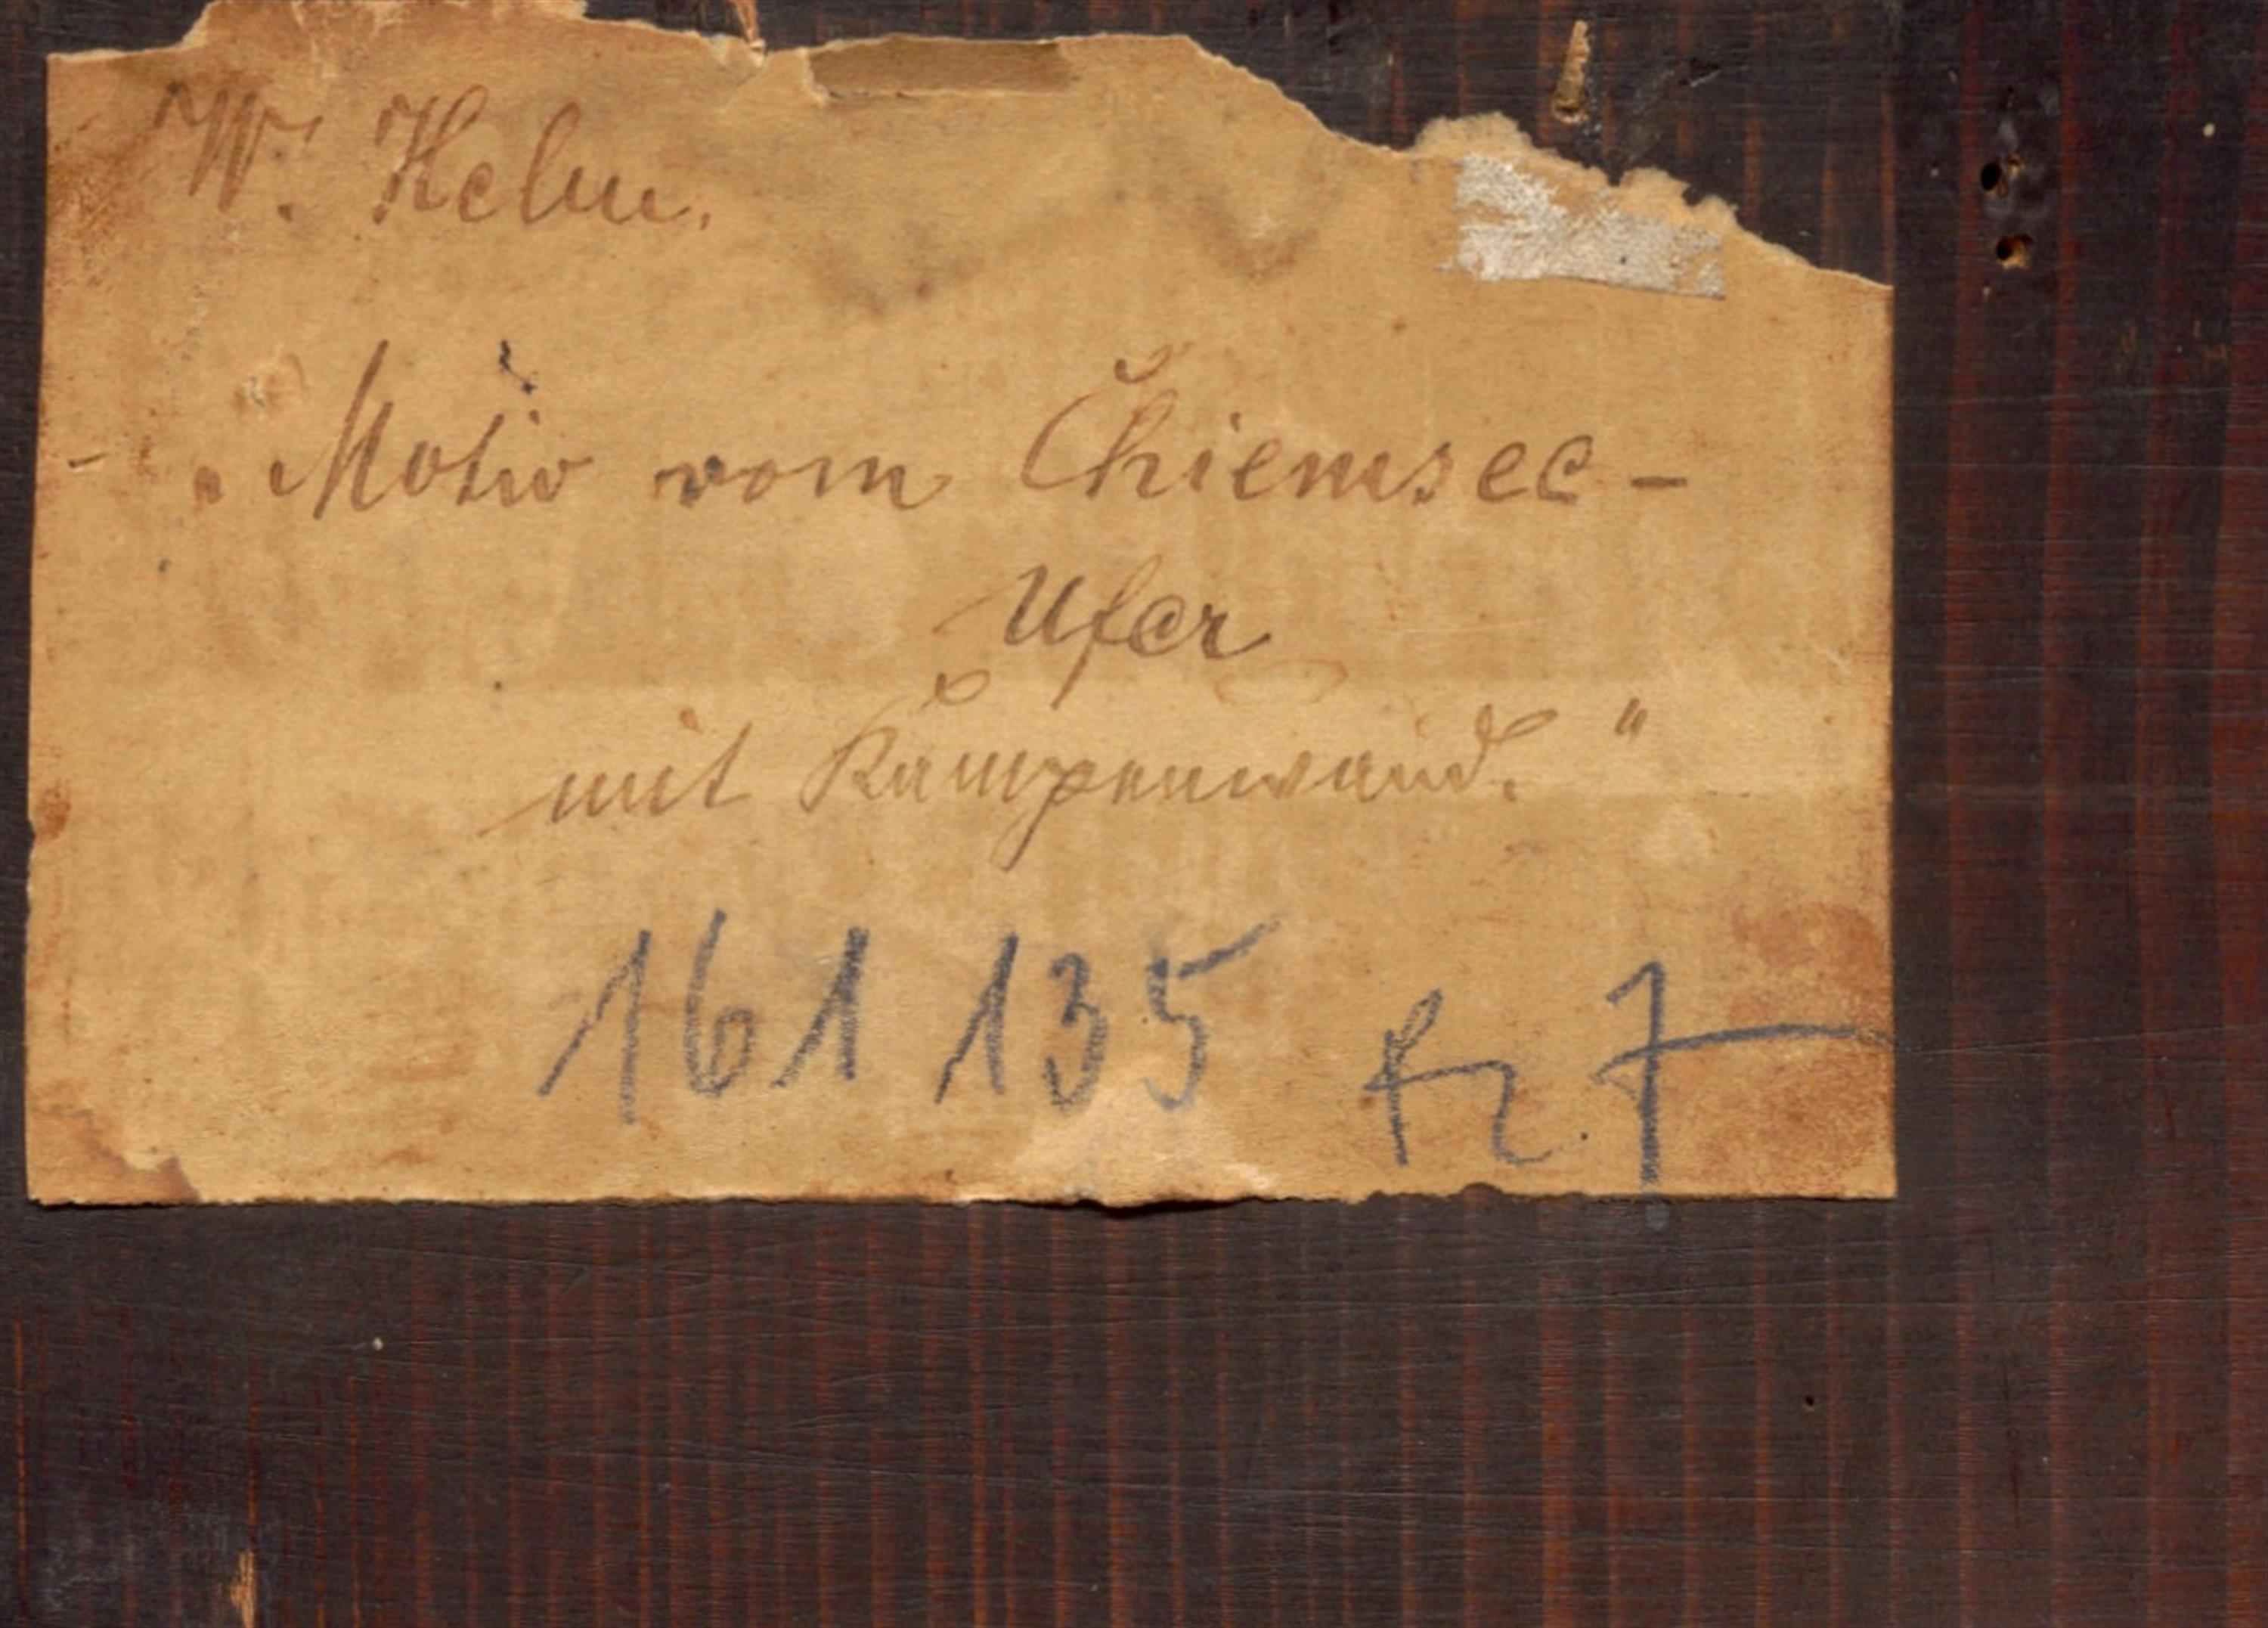 W. Helm.
- „Motiv vom Chiemsee-
Ufer
mit Kampenwand."
161 135 7